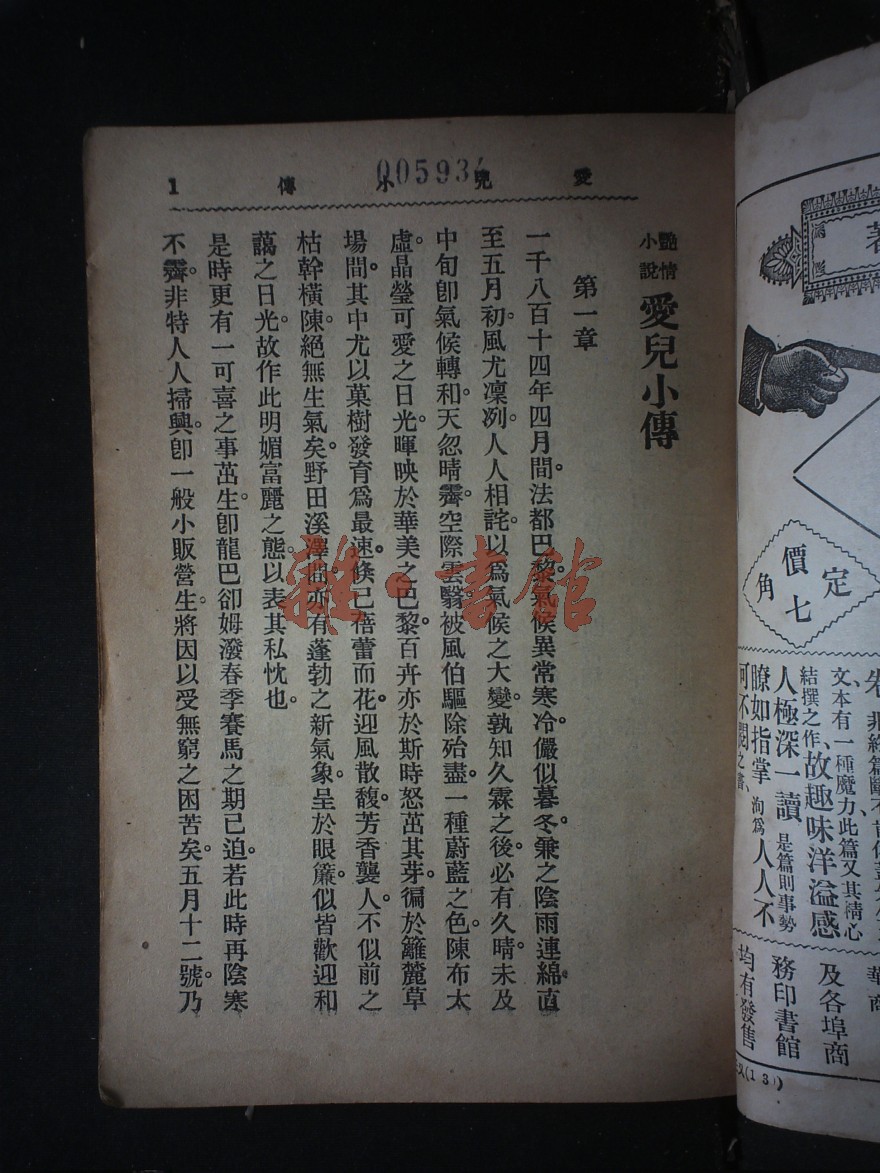 愛兒小傳 1
005934
艷情
小說
愛兒小傳
第一章
一千八百十四年四月間。法都巴黎。氣候異常寒冷。儼似暮冬。兼之陰雨連綿。直
至五月初。風尤凜冽。人人相詫。以爲氣候之大變。孰知久霖之後。必有久晴。未及
中旬。卽氣候轉和。天忽晴霽。空際雲翳。被風伯驅除殆盡。一種蔚藍之色。陳布太
虛。晶瑩可愛之日光。暉映於華美之巴黎。百卉亦於斯時怒茁其芽。徧於籬麓草
場間。其中尤以菓樹發育爲最速。倏已蓓蕾而花。迎風散馥。芳香襲人。不似前之
枯幹橫陳。絕無生氣矣。野田溪澤間。亦有蓬勃之新氣象。呈於眼簾。似皆歡迎和
藹之日光。故作此明媚富麗之態。以表其私忱也。
是時更有一可喜之事茁生。卽龍巴卻姆潑春季賽馬之期已迫。若此時再陰寒
不霽。非特人人掃興。卽一般小販營生。將因以受無窮之困苦矣。五月十二號。乃
雜·書館
定
價
七
角
文本有一種魔力此篇又其精心
結撰之作、故趣味洋溢感
人極深一讀、是篇則事勢
瞭如指掌洵爲人人不
可不閱之書、
華商
及各埠商
務印書館
均有發售
(130)